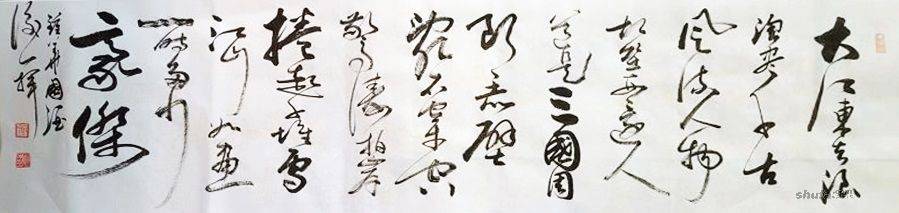 大江東去浪
淘盡千古
風流人物
故壘西邊人
道是三國周
郎赤壁
亂石穿空
驚濤拍岸
捲起千堆雪
江山如畫
一時多少
豪傑